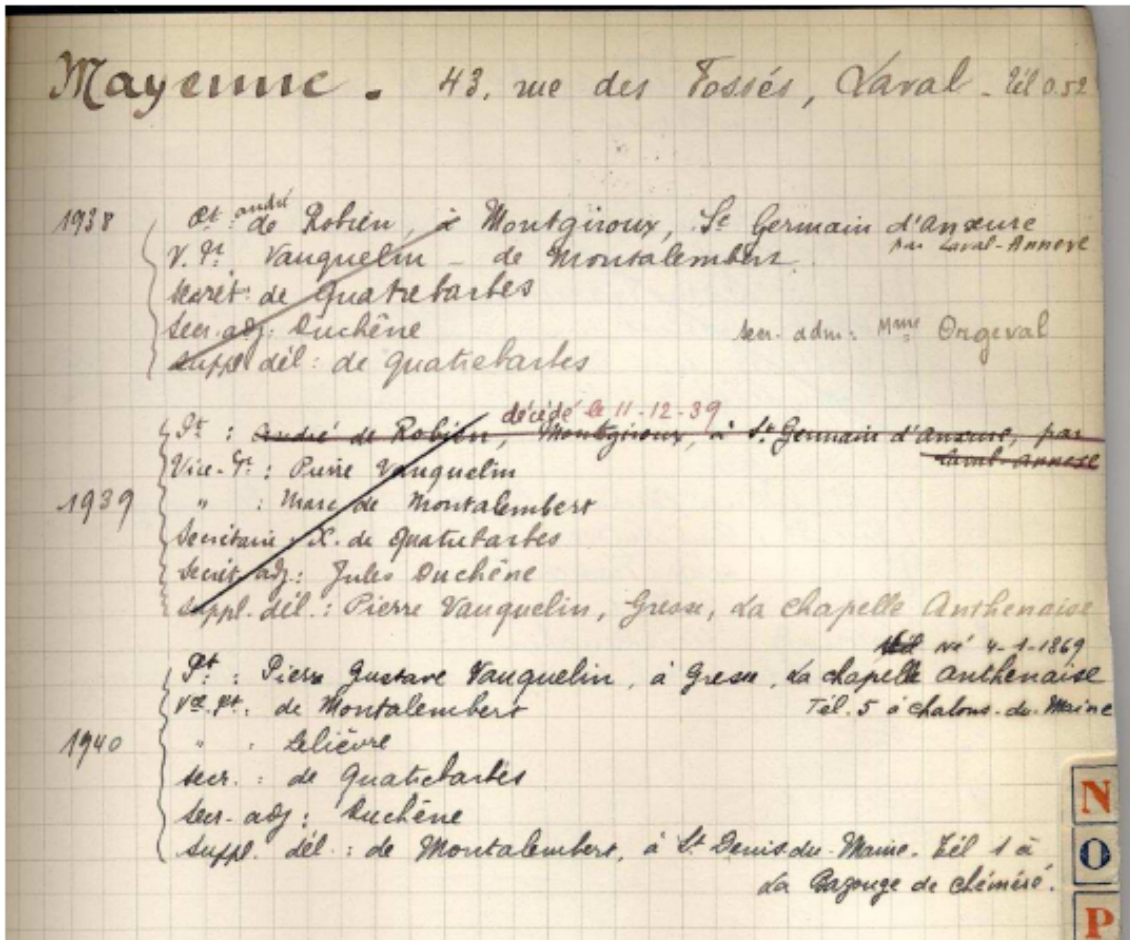 Mayenne. 43, rue des Fossés, Laval - Tél 0.52
1938
Pt. andré de Robien, à Montgiroux, St Germain d'Anxure
par Laval-Annexe
V. Pt. Vauquelin - de Montalembert.
Secrét: de Quatrebarbes
Secr. adj: Duchêne
secr. adm: Mme Orgeval
Suppl. dél: de Quatrebarbes
décédé le 11-12-39
Pt : André de Robien, Montgiroux, à St Germain d'Anxure, par
Laval-Annexe
Vice-Pt : Pierre Vauquelin
1939
" : Marc de Montalembert
Secrétaire : X. de Quatrebarbes
Secrét. adj: Jules Duchêne
Suppl. dél.: Pierre Vauquelin, Gresse, La Chapelle Anthenaise
né 4-1-1869
Pt : Pierre Gustave Vauquelin, à Gresse, La Chapelle Anthenaise
Vce. Pt: de Montalembert
Tél. 5 à Chalons-du-Maine
1940
" : Lelièvre
Secr. : de Quatrebarbes
Secr. adj : Duchêne
Suppl. dél : de Montalembert, à St Denis du Maine. Tél 1 à
La Bazouge de Chémeré.
N
O
P